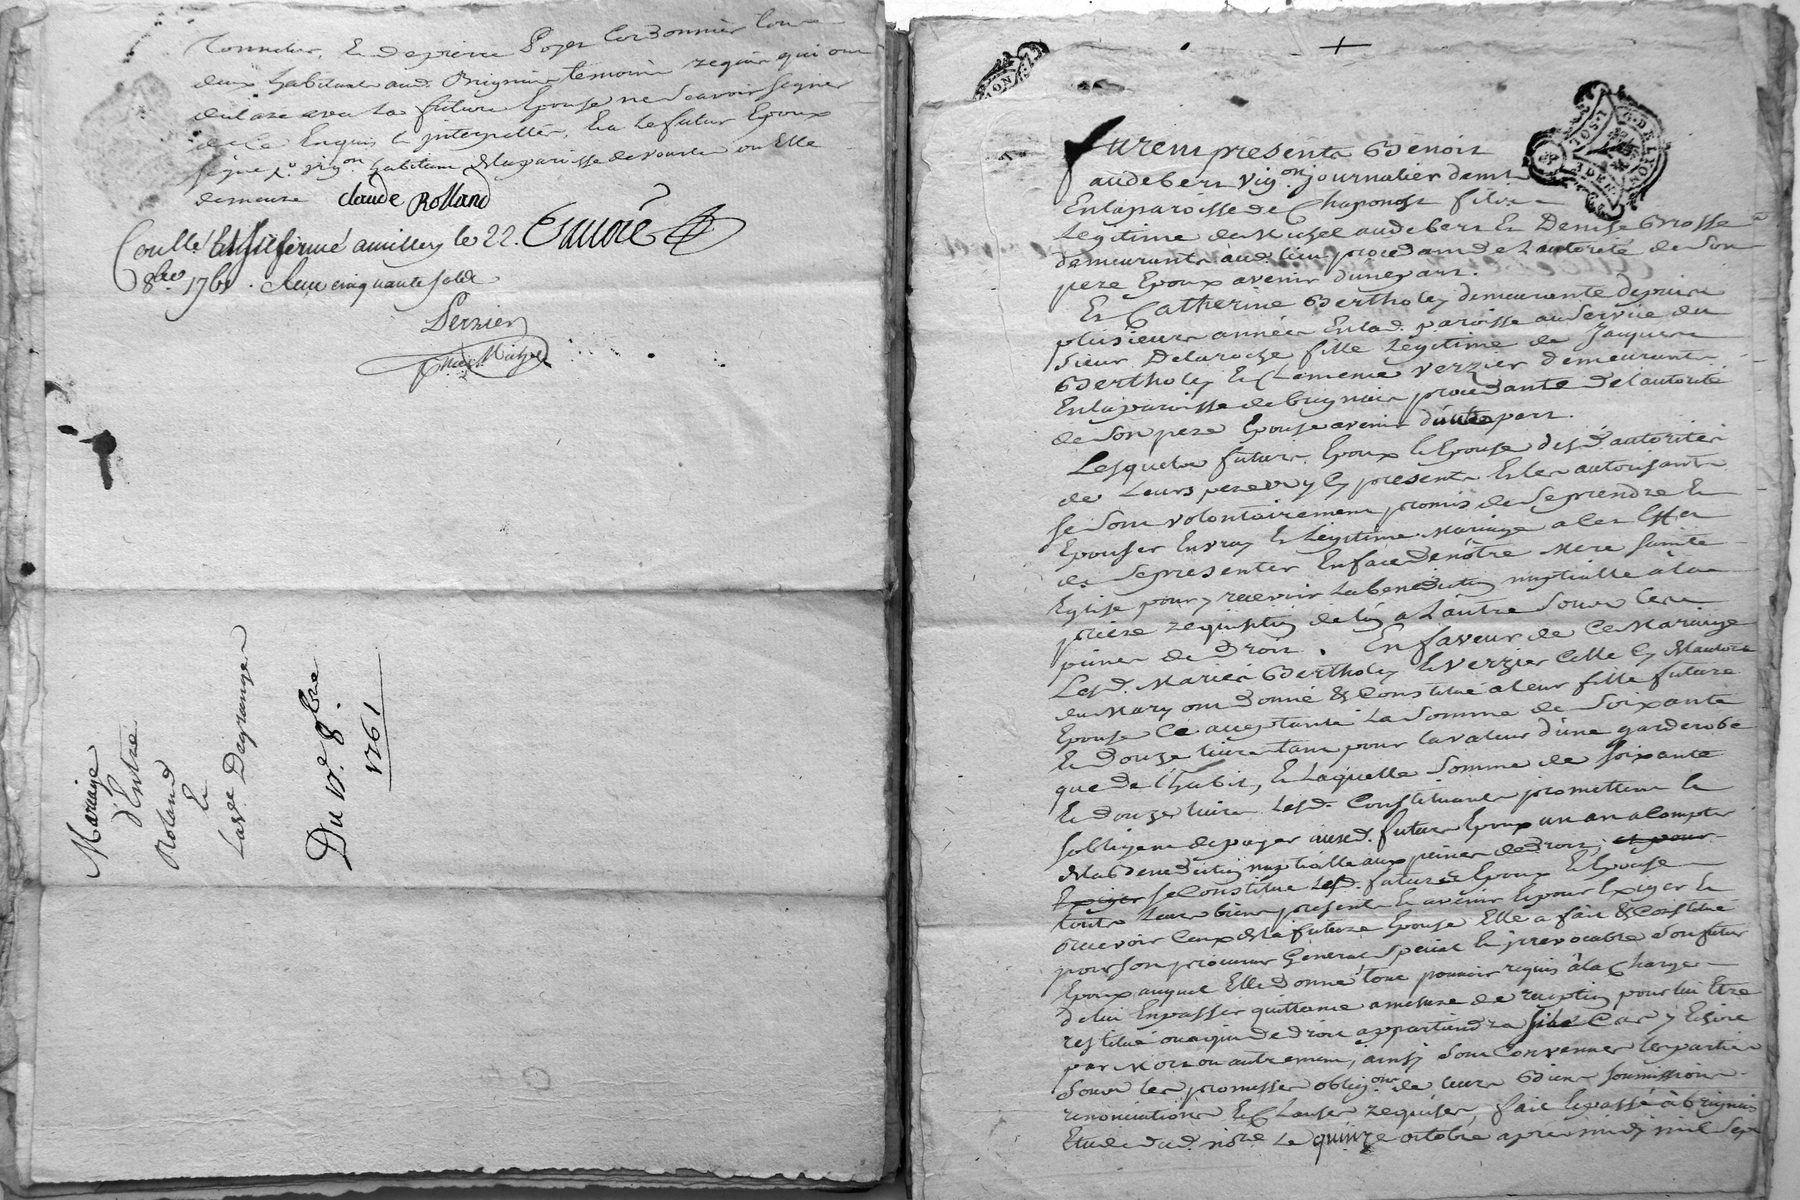 Tonnelier, Et de pierre Poyet Cordonnier tous
deux habitants aud. Brignais temoins requis qui ont
declaré avec la future Epouse ne scavoir signer
de ce Enquis et interpellés, Et a le futur Epoux
signé
demeure Claude Rolland
Conllé Et scellé à millery le 22. Cauoré
8bre 1761. Reçu cinquante sols
Perrier
Mariage
d'Entre
Roland
Et
Lasve Degranger
Du 15e 8bre
1761
G. DE LYON
Furent presents Benoit
audebert vigon journalier demt
En la paroisse de Chaponost fils
Legitime de Michel audebert Et Denise Brosse
demeurants aud. lieu procedant de L'autorité de son
pere Epoux avenir d'une part.
Et Catherine Bertholey demeurante depuis
plusieurs années En lad. paroisse au service du
sieur Delaroche fille Legitime de Jacques
Bertholey Et Clemence Verzier demeurants
En la paroisse de brignais procedante de l'autorité
de Son pere Epouse avenir d'autre part.
Lesquels futurs Epoux Et Epouse desd. autorités
de Leurs peres icy presents Et les autorisants
se sont volontairement promis de Se prendre Et
Epouser En vray Et Legitime Mariage a cet Effet
de se presenter En face de nôtre Mere Sainte
Eglise pour y recevoir La benediction nuptialle à la
priere requisition de L'un a L'autre Sous les
peines de Droit. En faveur de Ce Mariage
Lesd. Mariés Bertholey Et Verzier Celle cy
du Mary ont donné & Constitué a leur fille future
Epouse Ce acceptante La Somme de Soixante
Et Douze livres tant pour la valeur d'une garderobe
que de l'habit, Et Laquelle Somme de Soixante
Et douze livres Lesd. Constituants promettent Et
s'obligent de payer auxd. futurs Epoux un an a Compter
de la benediction nuptialle aux peines de Droit, et pour
Exiger se Constitue Lesd. futurs Epoux Et Epouse
touts Leurs biens presents Et avenir Et pour Exiger Et
recevoir Ceux de la future Epouse Elle a fait & Constitué
pour son procureur General Special Et irrevocable Son futur
Epoux auquel Elle donne tout pouvoir requis à la Charge
de lui En passer quittance a mesure de reception pour lui Etre
restitué ou a qui de Droit appartiendra si le Cas y Echoit
par Mort ou autrement, ainsi Sont Convenues les parties
Sous les promesses obligons de leurs Biens soumissions
renonciations Et Clauses requises, fait Et passé à brignais
Etude dud. nôre Le quinze octobre apres midy mil Sept